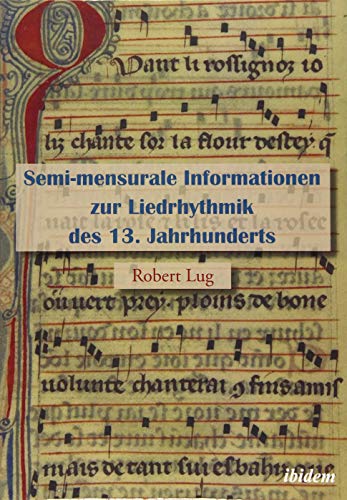 Uant li rossignoz io
liz chante sor la flour destey q̃
Semi-mensurale Informationen
zur Liedrhythmik
des 13. Jahrhunderts
Robert Lug
ou vert prey. ploins de bone
uolunte chanterai ꝯ fins amis
mais de tant sui es bahiz
ibidem